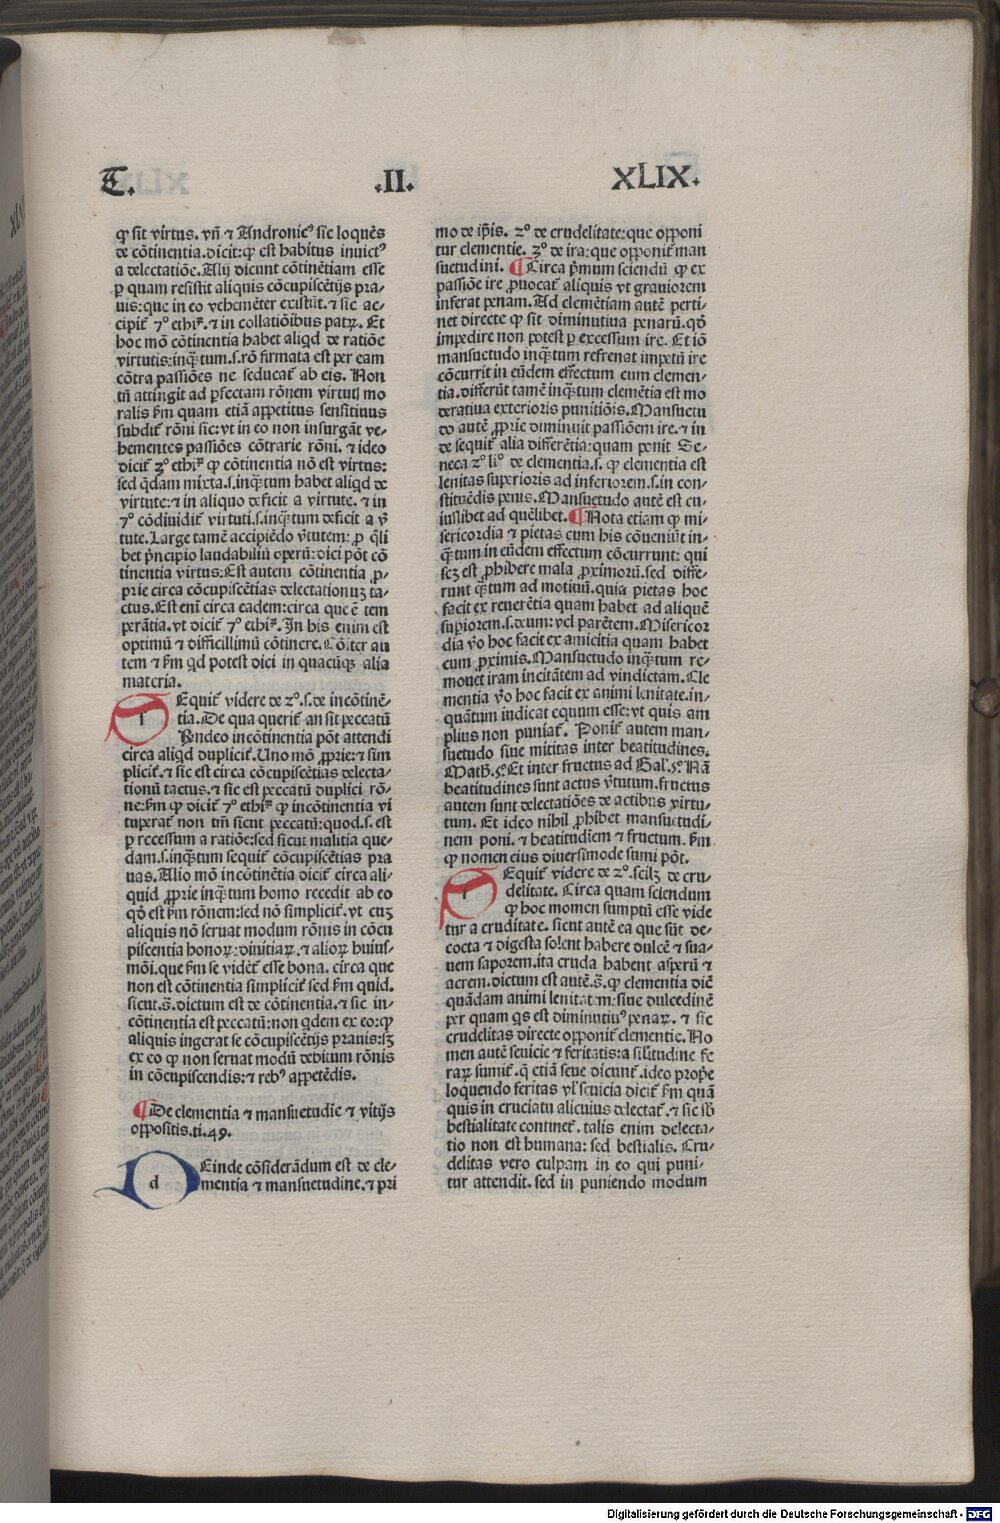 T.
.II.
XLIX.
ꝙ sit virtus. vñ ⁊ Andronicꝰ sic loquẽs
de cõtinentia. dicit: ꝙ est habitus inuictꝰ
a delectatiõe. Alij dicunt cõtinẽtiam esse
ꝑ quam resistit aliquis cõcupiscẽtijs pra-
uis: que in eo vehemẽter existũt. ⁊ sic ac-
cipit̃ 7º ethiꝝ. ⁊ in collatiõibus patꝝ. Et
hoc mõ cõtinentia habet aliqd de ratiõe
virtutis: inqͣtum. s. rõ firmata est per eam
cõtra passiões ne seducat̃ ab eis. Non
tñ attingit ad ꝑfectam rõnem virtutꝭ mo
ralis ẜm quam etiã appetitus sensitiuus
subdit̃ rõni sic: vt in eo non insurgãt ve-
hementes passiões cõtrarie rõni. ⁊ ideo
dicit̃ 3º ethiꝝ ꝙ cõtinentia nõ est virtus:
sed qͣdam mixta. s. inqͣtum habet aliqd de
virtute: ⁊ in aliquo deficit a virtute. ⁊ in
7º cõdiuidit̃ virtuti. s. inqͣtum deficit a v̓
tute. Large tamẽ accipiẽdo v̓tutem: ꝓ qͣli
bet pͥncipio laudabiliũ operũ: dici põt cõ
tinentia virtus: Est autem cõtinentia ꝓ-
prie circa cõcupiscẽtias delectationuꝫ ta-
ctus. Est eñ circa eadem: circa que ẽ tem
perãtia. vt dicit̃ 7º ethiꝝ. In his enim est
optimũ ⁊ difficillimũ cõtinere. Cõiter au
tem ⁊ ẜm qd potest dici in quacũqꝫ alia
materia.
i
Equit̃ videre de 2º. s. de incõtinẽ-
tia. De qua querit̃ an sit peccatũ
Rñdeo incõtinentia põt attendi
circa aliqd duplicit̃. Uno mõ ꝓprie: ⁊ sim
plicit̃. ⁊ sic est circa cõcupiscẽtias delecta-
tionũ tactus. ⁊ sic est peccatũ duplici rõ-
ne: ẜm ꝙ dicit̃ 7º ethiꝝ ꝙ incõtinentia vi
tuperat̃ non tm̃ sicut peccatũ: quod. s. est
ꝑ recessum a ratiõe: sed sicut malitia que-
dam. s. inqͣtum sequit̃ cõcupiscẽtias pra
uas. Alio mõ incõtinẽtia dicit̃ circa ali-
quid ꝓprie inqͣtum homo recedit ab eo
qd̓ est ẜm rõnem: sed nõ simplicit̃. vt cuꝫ
aliquis nõ seruat modum rõnis in cõcu
piscentia honoꝝ: diuitiaꝝ. ⁊ alioꝝ huius-
mõi. que ẜm se vidẽt̃ esse bona. circa que
non est cõtinentia simplicit̃ sed ẜm quid.
sicut. s̃. dictum est de cõtinentia. ⁊ sic in-
cõtinentia est peccatũ: non qdem ex eo: ꝙ
aliquis ingerat se cõcupiscẽtijs prauis: sꝫ
ex eo ꝙ non seruat modũ debitum rõnis
in cõcupiscendis: ⁊ rebꝰ appetẽdis.
¶ De clementia ⁊ mansuetudĩe ⁊ vitijs
oppositis. ti. 49.
d
Einde cõsiderãdum est de cle-
mentia ⁊ mansuetudine. ⁊ pri
mo de ip̃is. 2º de crudelitate: que opponi
tur clementie. 3º de ira: que opponit̃ man
suetudini. ¶ Circa pͥmum sciendũ ꝙ ex
passiõe ire ꝓuocat̃ aliquis vt grauiorem
inferat penam. Ad clemẽtiam autẽ perti-
net directe ꝙ sit diminutiua penarũ. qd̓
impedire non potest ꝑ excessum ire. Et iõ
mansuetudo inqͣtum refrenat impetũ ire
cõcurrit in eũdem effectum cum clemen-
tia. differũt tamẽ inqͣtum clemẽtia est mo
deratiua exterioris punitiõis. Mansuetu
do autẽ ꝓprie diminuit passiõem ire. ⁊ in
de sequit̃ alia differẽtia: quam ponit Se-
neca 2º liº de clementia. s. ꝙ clementia est
lenitas superioris ad inferiorem. s. in con-
stituẽdis penis. Mansuetudo autẽ est cu-
iuslibet ad quẽlibet. ¶ Nota etiam ꝙ mi-
sericordia ⁊ pietas cum his cõueniũt in-
qͣtum in eũdem effectum cõcurrunt: qui
scꝫ est ꝓhibere mala ꝓximorũ. sed diffe-
runt qͣtum ad motiuũ. quia pietas hoc
facit ex reuerẽtia quam habet ad aliquẽ
suꝑiorem. s. deum: vel parẽtem. Misericor
dia v̓o hoc facit ex amicitia quam habet
cum ꝓximis. Mansuetudo inqͣtum re-
mouet iram incitãtem ad vindictam. Cle
mentia v̓o hoc facit ex animi lenitate. in-
quãtum iudicat equum esse: vt quis am
plius non puniat̃. Ponit̃ autem man-
suetudo siue mititas inter beatitudines.
Matḣ. 5. Et inter fructus ad Gal. 5º. Nã
beatitudines sunt actus v̓tutum. fructus
autem sunt delectatiões de actibus virtu-
tum. Et ideo nihil ꝓhibet mansuetudi-
nem poni. ⁊ beatitudĩem ⁊ fructum. ẜm
ꝙ nomen eius diuersimode sumi põt.
i
Equit̃ videre de 2º. scilꝫ de cru
delitate. Circa quam sciendum
ꝙ hoc momen sumptũ esse vide
tur a cruditate. sicut autẽ ea que sũt de-
cocta ⁊ digesta solent habere dulcẽ ⁊ sua-
uem saporem. ita cruda habent asperũ ⁊
acrem. dictum est autẽ. s̃. ꝙ clementia dic̃
quãdam animi lenitatem: siue dulcedinẽ
per quam qs est diminutiuꝰ penaꝝ. ⁊ sic
crudelitas directe opponit̃ clementie. No
men autẽ seuicie ⁊ feritatis: a sil̓itudine fe
raꝝ sumit̃. q̃ etiã seue dicunt̃. ideo prop̓e
loquendo feritas vl̓ seuicia dicit̃ ẜm quã
quis in cruciatu alicuius delectat̃. ⁊ sic sb̓
bestialitate continet̃. talis enim delecta-
tio non est humana: sed bestialis. Cru-
delitas vero culpam in eo qui puni-
tur attendit. sed in puniendo modum
Digitalisierung gefördert durch die Deutsche Forschungsgemeinschaft - DFG